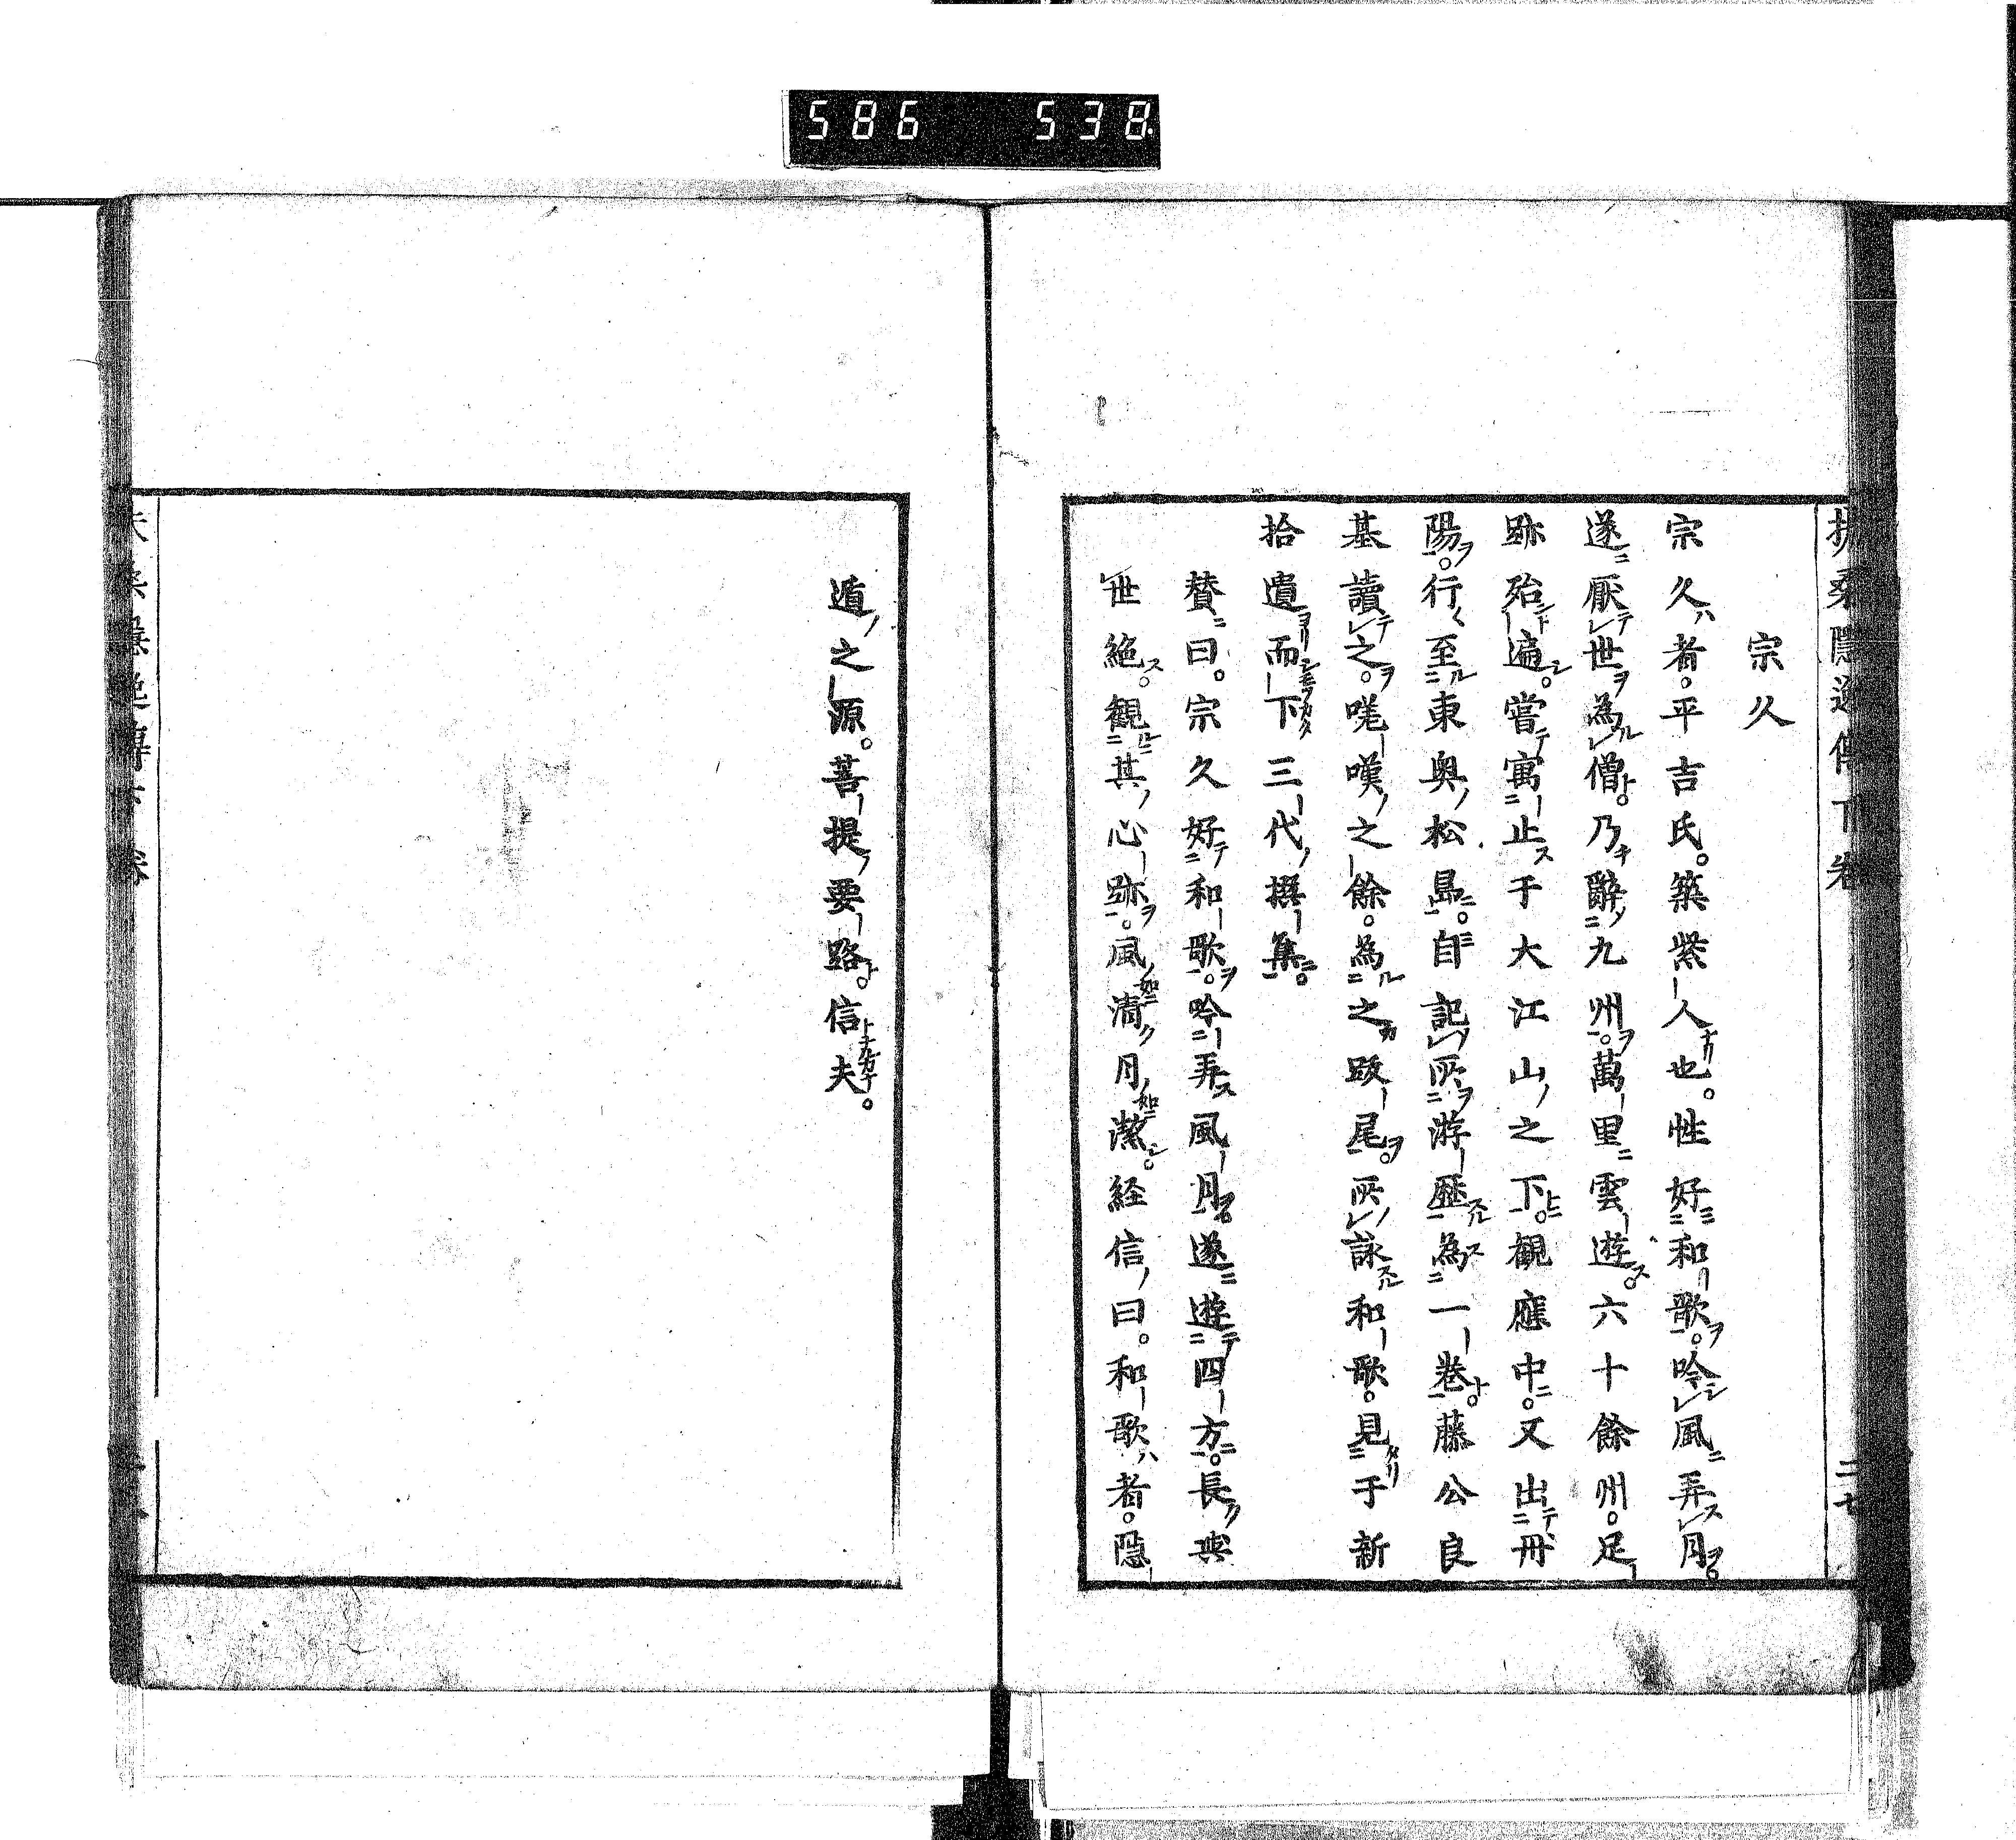 586 538.
扶桑隱逸傳下卷 二七
宗久
宗久者。平吉氏。築紫人也。性好和歌。吟風弄月。
遂厭世為僧。乃辭九州。萬里雲遊。六十餘州。足
跡殆遍。嘗寓止于大江山之下。觀應中。又出丹
陽。行〱至東奥松島。自記所游歴為一卷。藤公良
基讀之。嗟嘆之餘。為之跋尾。所詠和歌。見于新
拾遺而下三代撰集。
賛曰。宗久好和歌。吟弄風月。遂遊四方。長與
世絶。觀其心跡。風清月潔。経信曰。和歌者。隱
遁之源。菩提要路。信夫。